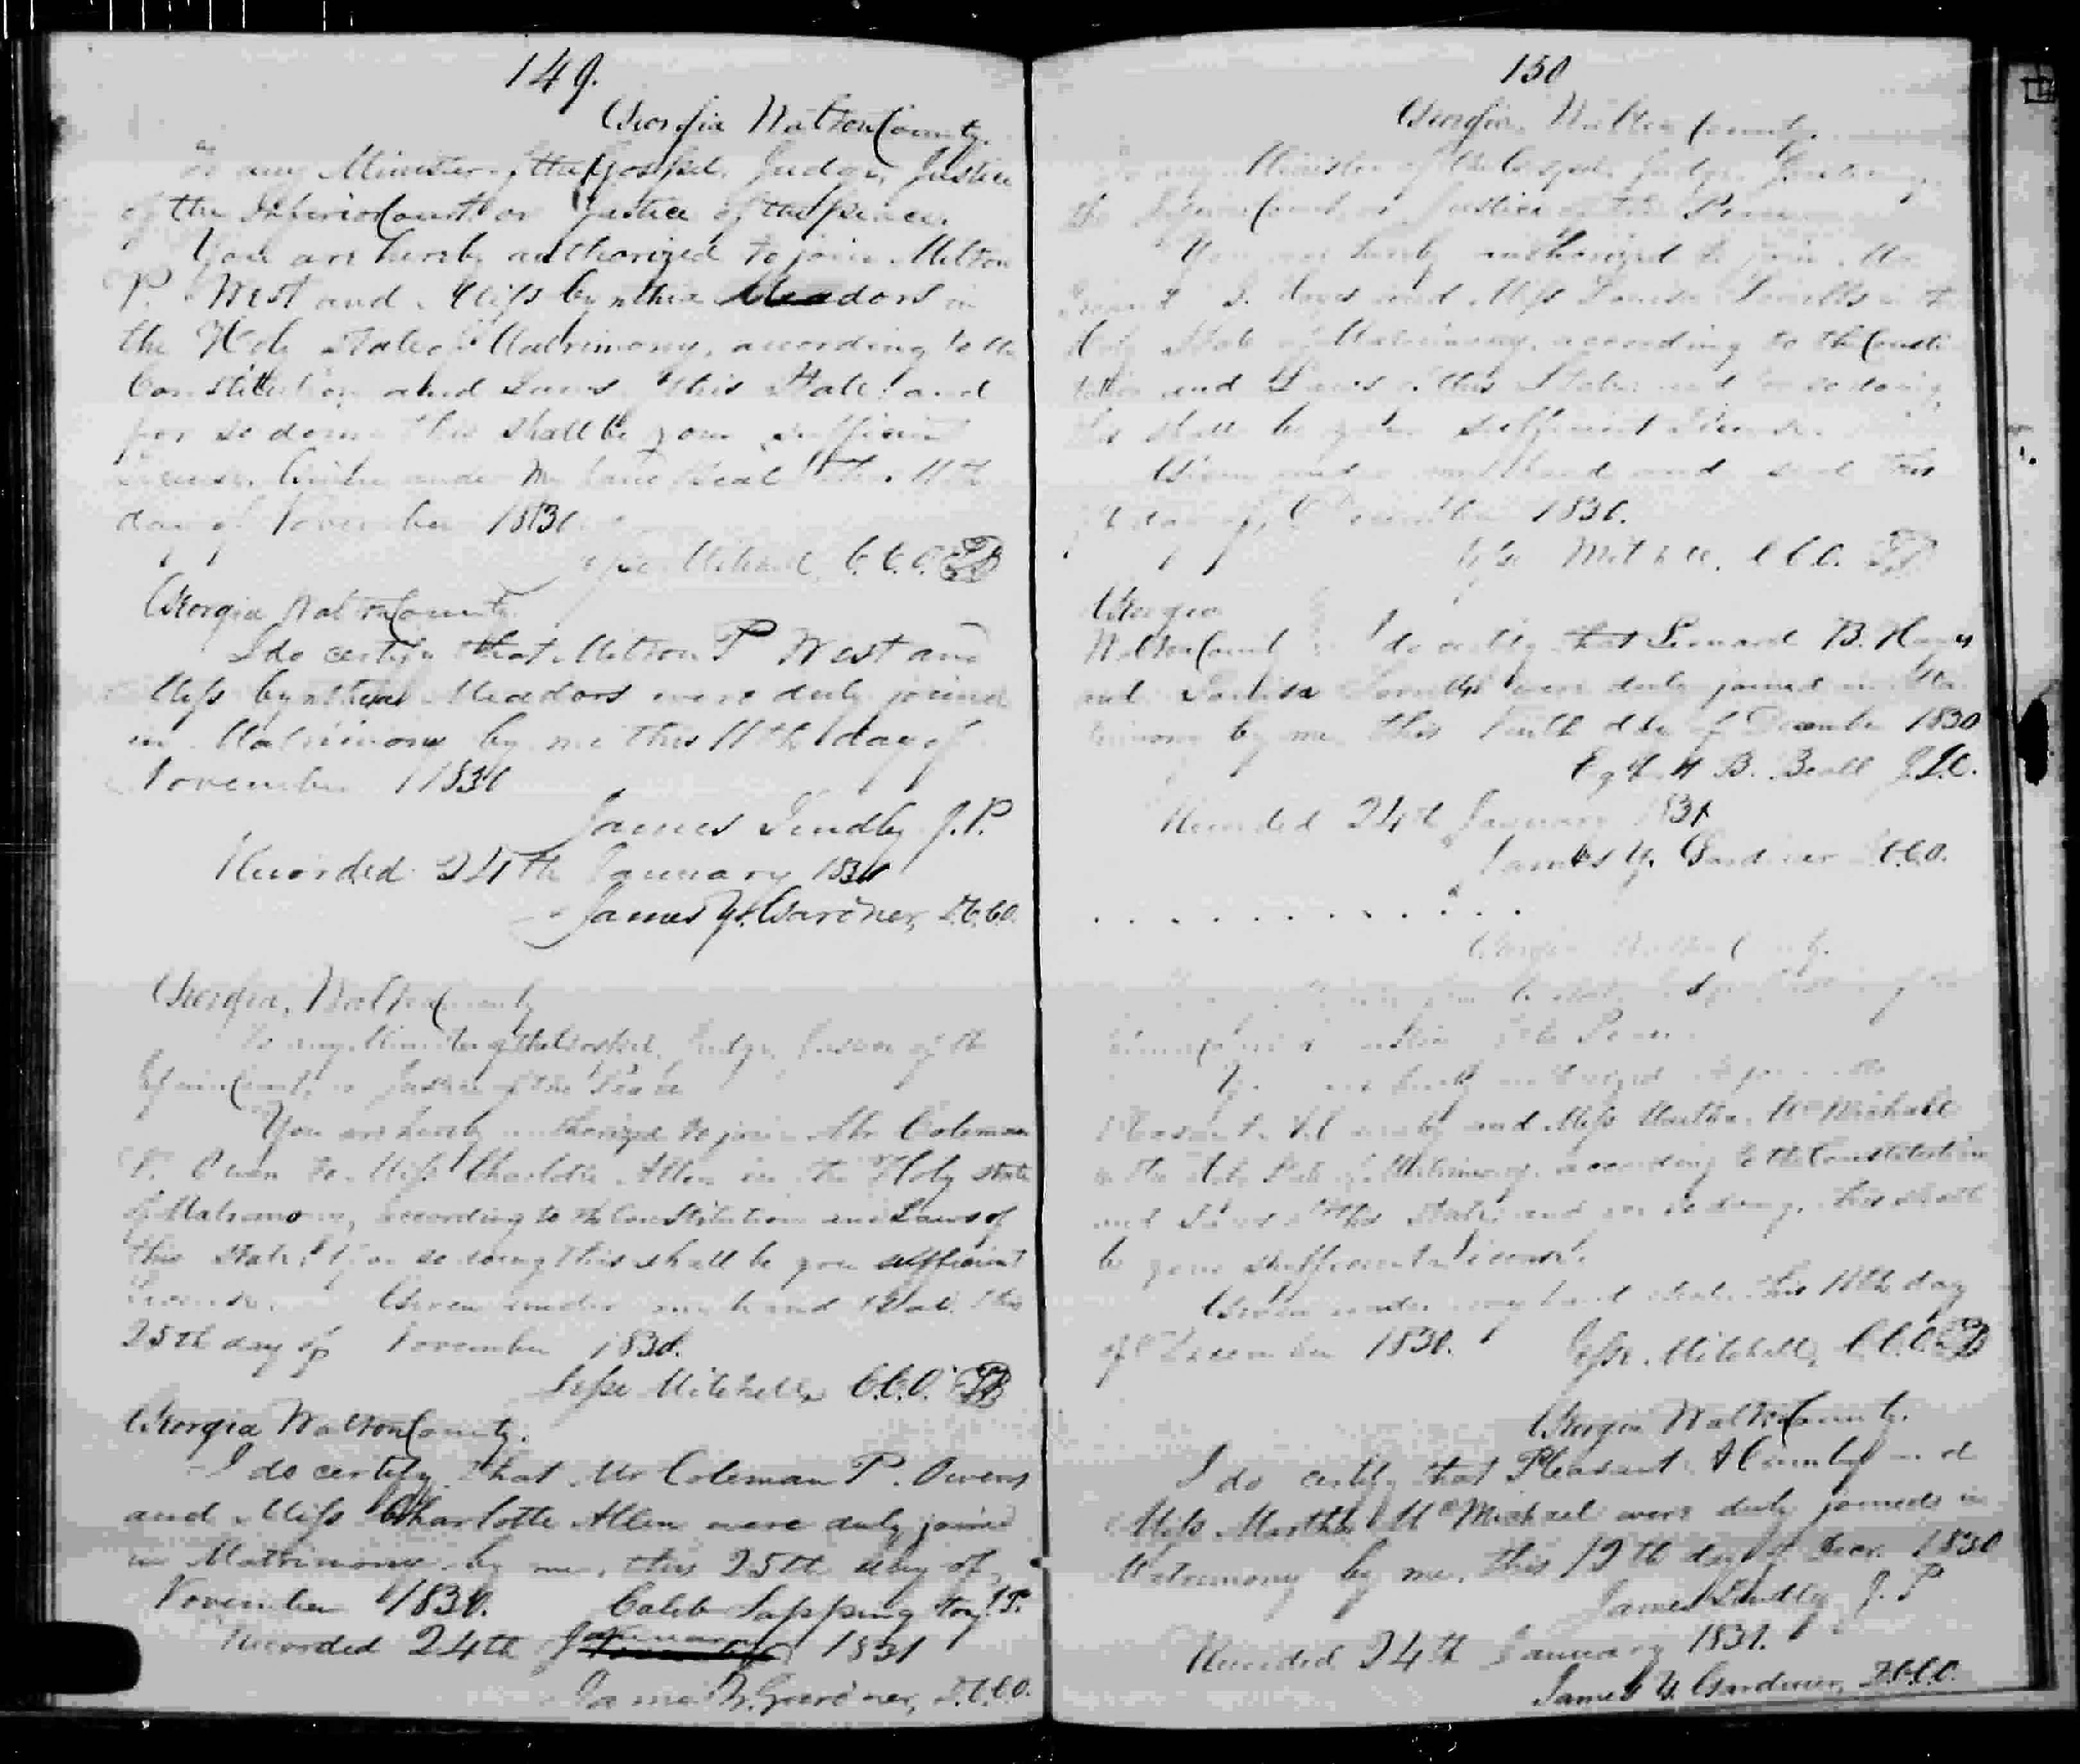 149.
Georgia Walton County.
To any Minister of the Gospel, Judge, Justice
of the Inferior Court or Justice of the peace.
You are hereby authorized to join Milton
P. West and Miss Cynthia Meadors in
the Holy State of Matrimony, according to the
Constitution and Laws of this State and
for so doing this shall be your sufficient
License. Given under my hand & Seal this 11th
day of November 1830.
Jesse Mitchell, C.C.O.
Georgia Walton County
I do certify that Milton P West and
Miss Cynthia Meadors were duly joined
in Matrimony by me this 11th day of
November 1830
James Lindly J.P.
Recorded 24th January 1831
James Gardner, D.C.C.O.
Georgia, Walton County
To any Minister of the Gospel, Judge, Justice of the
Inferior Court, or Justice of the Peace
You are hereby authorized to join Mr Coleman
P. Owen to Miss Charlotte Allen in the Holy state
of Matrimony, according to the Constitution and Laws of
this State, & for so doing this shall be your sufficient
License. Given under my hand & Seal this
25th day of November 1830.
Jesse Mitchell, C.C.O.
Georgia Walton County.
I do certify that Mr Coleman P. Owens
and Miss Charlotte Allen were duly joined
in Matrimony by me, this 25th day of
November 1830. Caleb J.P.
Recorded 24th January 1831
James Gardner, D.C.C.O.
150
Georgia, Walton County.
To any Minister of the Gospel, Judge, Justice of
the Inferior Court or Justice of the Peace
You are hereby authorized to join Mr
B. Hays and Miss Louisa in the
Holy State of Matrimony, according to the Consti
tution and Laws of this State and for so doing
this shall be your sufficient License.
Given under my hand and seal this
day of December 1830.
Jesse Mitchell, C.C.O.
Georgia
Walton County I do certify that Leonard B. Hays
and Louisa were duly joined in Ma
trimony by me this tenth day of December 1830
B. Beall J.I.C.
Recorded 24th January 1831
James Y. Gardner D.C.C.O.
Georgia Walton County.
Justice of the Peace.
You are hereby authorized to join Mr
Pleasant and Miss Martha McMichael
in the Holy State of Matrimony, according to the Constitution
and Laws of this State, and for so doing, this shall
be your sufficient License.
Given under my hand & seal this 11th day
of December 1830. Jesse Mitchell, C.C.O.
Georgia Walton County.
I do certify that Pleasant and
Miss Martha McMichael were duly joined in
Matrimony by me, this 19th day of Decr. 1830
James Lindly J.P
Recorded 24th January 1831.
James Y. Gardner, D.C.C.O.